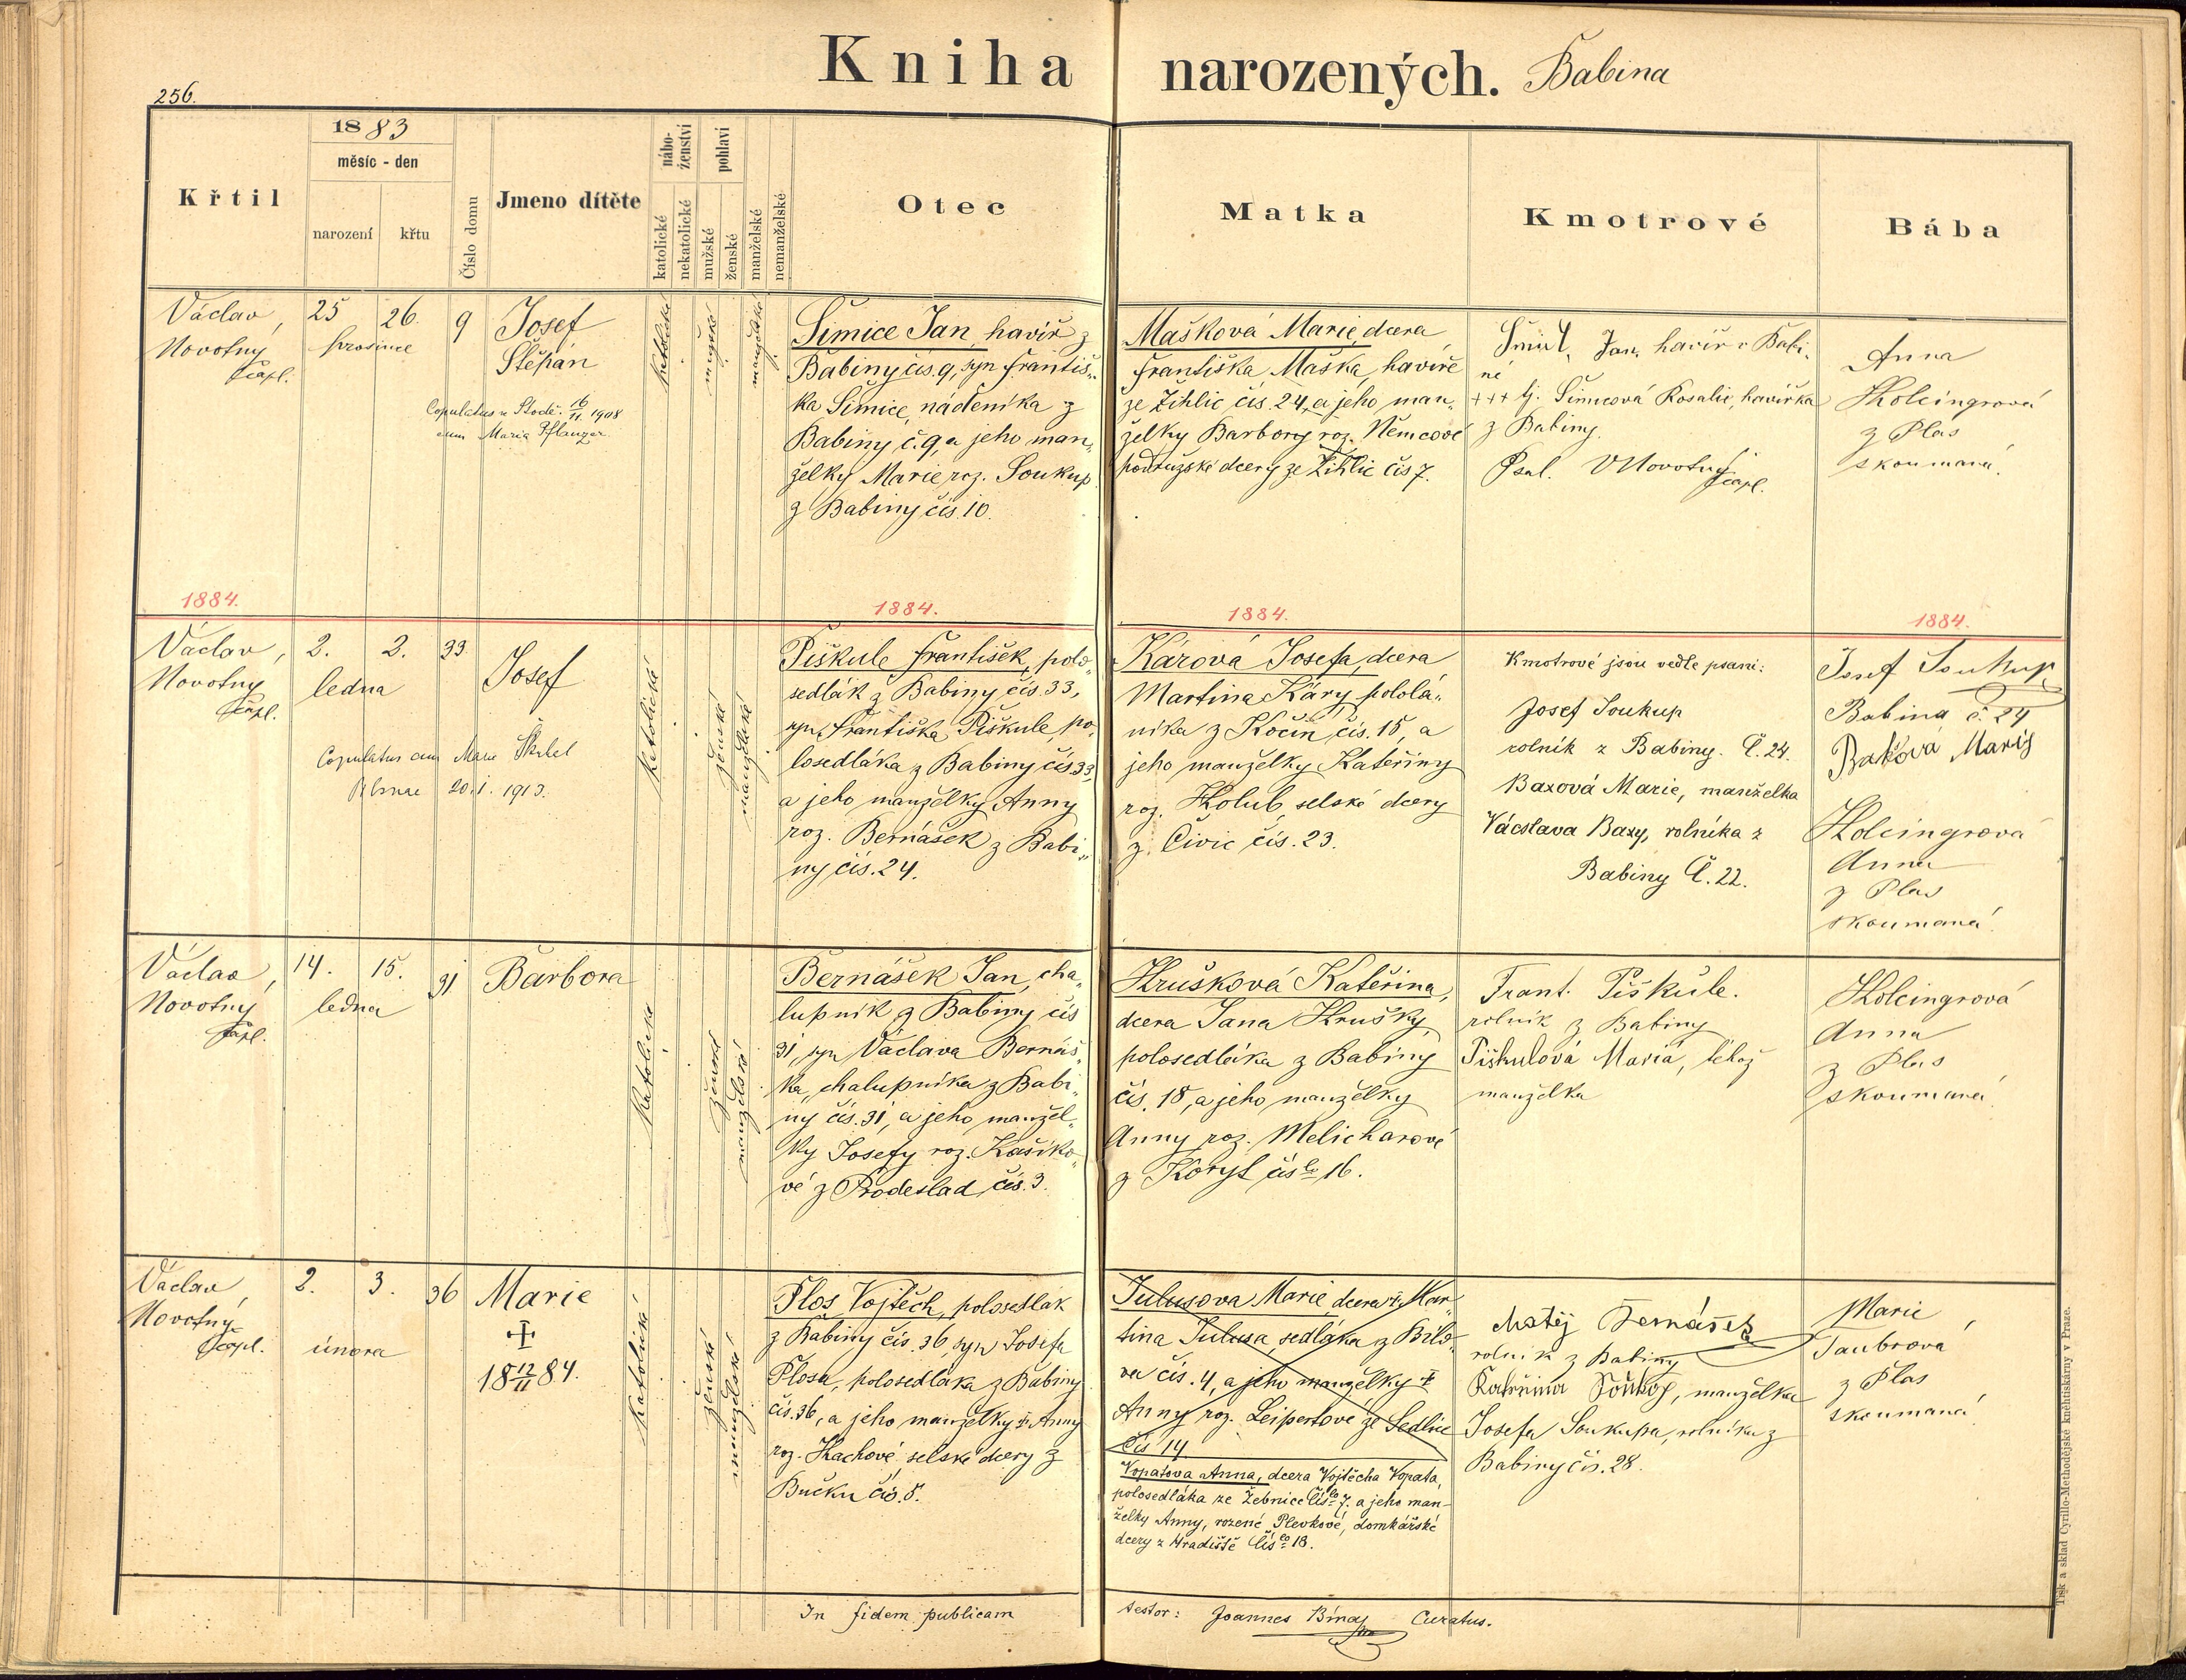 Kniha narozených. Babina
256.
1883
měsíc - den
Křtil
narození
křtu
Číslo domu
Jmeno dítěte
nábo-
ženství
katolické
nekatolické
pohlaví
mužské
ženské
manželské
nemanželské
Otec
Matka
Kmotrové
Bába
Václav
Novotný
kapl.
25
26.
prosince
9
Josef
Štěpán
Copulatus v Stodě 16/11. 1908
cum Maria Pflanzer
katolické
mužské
manželské
Šimice Jan, havíř z
Babiny čís. 9, syn Františ-
ka Šimice, nádeníka z
Babiny č. 9, a jeho man-
želky Marie roz. Soukup
z Babiny čís. 10.
Mašková Marie, dcera
Františka Maška, havíře
ze Žihlic čís. 24, a jeho man-
želky Barbory roz. Němcové
podružské dcery ze Žihlic čís 7.
Jan, havíř v Babi-
ně
+++ tj. Šimicová Rosalie, havířka
z Babiny.
Psal. VNovotný
kapl.
Anna
Holcingrová
z Plas
skoumaná.
1884.
1884.
1884.
1884.
Václav,
Novotný
kapl.
2.
2.
ledna
33
Josef
Copulatus cum Marie
20. I. 1913.
katolické
ženské
manželské
Piškule František, polo-
sedlák z Babiny čís. 33,
syn Františka Piškule, po-
losedláka z Babiny čís. 33
a jeho manželky Anny
roz. Bernášek z Babi-
ny čís. 24.
Kárová Josefa, dcera
Martina Káry, pololá-
níka z Kočín čís. 15, a
jeho manželky Kateřiny
roz. Holub, selské dcery
z Čivic čís. 23.
Kmotrové jsou vedle psaní:
Josef Soukup
rolník z Babiny. Č. 24.
Baxová Marie, manželka
Vácslava Baxy, rolníka z
Babiny Č. 22.
Josef Soukup
Babina č. 24
Bakšová Mariy
Holcingrová
Anna
z Plas
skoumaná.
Václav,
Novotný
kapl.
14.
15.
ledna
31
Barbora
katolické
ženské
manželské
Bernášek Jan, cha-
lupník z Babiny čís
31, syn Václava Bernáš-
ka, chalupníka z Babi-
ny čís. 31, a jeho manžel-
ky Josefy roz. Kašíko-
vé z Prodeslad čís. 3.
Hrušková Kateřina,
dcera Jana Hrušky,
polosedláka z Babiny
čís. 18, a jeho manželky
Anny roz. Melicharové
z Koryt čís. 16.
Frant. Piškule.
rolník z Babiny
Piškulová Maria, téhož
manželka
Holcingrová
Anna
z Plas
skoumaná.
Václav
Novotný
kapl.
2.
3.
února
36
Marie
✝
18 12/11 84.
katolické
ženské
manželské
Plos Vojtěch, polosedlák
z Babiny čís. 36, syn Josefa
Plosa, polosedláka z Babiny
čís. 36, a jeho manželky Anny
roz. Hachové, selské dcery z
Bučku čís. 8.
Tulusova Marie, dcera Mar-
tina Tulusa, sedláka z Bílo-
va čís. 4, a jeho manželky
Anny roz. Leipertové ze Sedlice
čís 14
Kopatova Anna, dcera Vojtěcha Kopata,
polosedláka ze Žebnice Čís. 7. a jeho man-
želky Anny, rozené Plevkové, domkářské
dcery z Hradiště Čís. 18.
Matěj Bernášek
rolník z Babiny
Kateřina Soukup, manželka
Josefa Soukupa, rolníka z
Babiny čís. 28.
Marie
Taubrová
z Plas
skoumaná
In fidem publicam
testor: Joannes Curatus.
Tisk a sklad Cyrillo-Methodějské knihtiskárny v Praze.